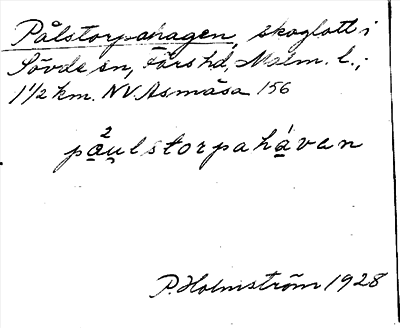 Pålstorpahagen, skoglott i
Sövde sn, Färs hd, Malm. l.;
1 1/2 km. NV Asmåsa 156
pa̲²u̲lstorpahá̲van
P. Holmström 1928